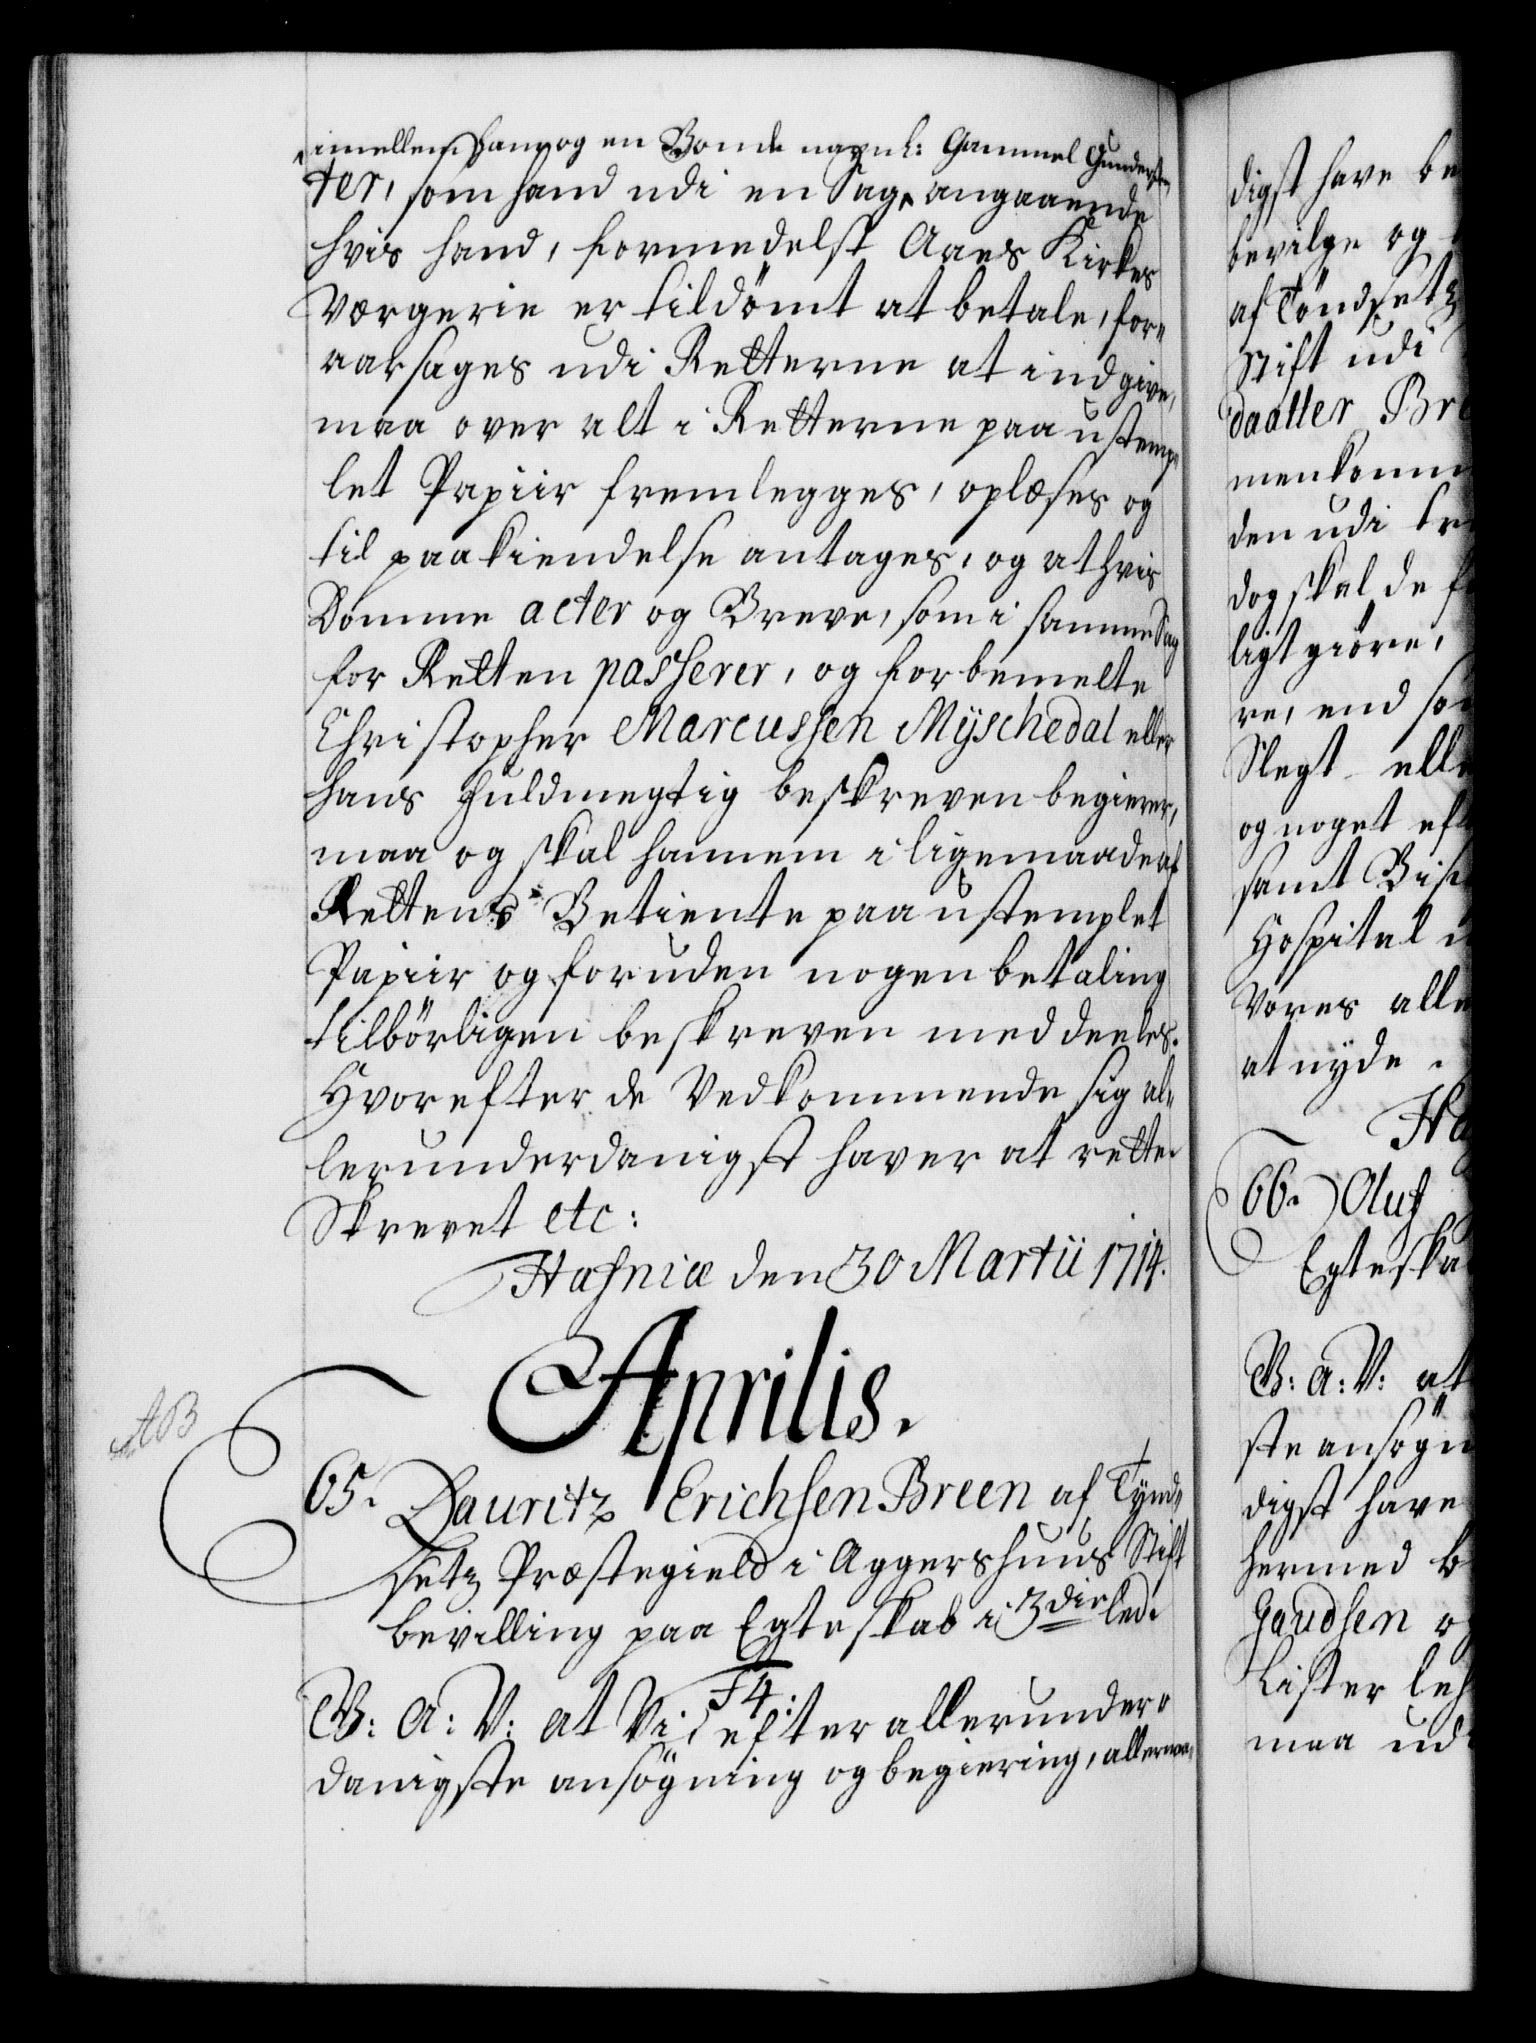 imellem ham og en Bonde navnl: Gammel Gunders
ter, som hand udi en Sag, angaaende
hvis hand, formedelst Aaes Kirkes
Værgerie er tildömt at betale, for-
aarsages udi Retterne at indgive,
maa over alt i Retterne paa ustemp-
let Papiir fremlegges, oplæses og
til paakiendelse antages, og at hvis
Domme acter og Breve, som i samme Sag
for Retten passerer, og forbemelte
Christopher Marcussen Mÿschedal eller
hans fuldmegtig beskreven begierer,
maa og skal hannem i ligemaade af
Rettens Betiente paa ustemplet
Papiir og foruden nogen betaling
tilbörligen beskreven meddeeles.
Hvorefter de Vedkommende sig al-
lerunderdanigst haver at rette.
Skrevet etc:
Hafniæ den 30 Martii 1714.
Aprilis.
AB
65. Lauritz Erichsen Breen af Tÿnd-
setz Præstegield i Aggershuus Stift
bevilling paa Egteskab i 3die led.
F4:
W: A: V: at Vi efter allerunder-
danigste ansögning og begiering, allernaa-
digst have be
bevilge og
af Töndsetz
Stift udi
daatter Bre
menkomm
den udi tr
dog skal de
ligt giöre,
re, end so
Slegt elle
og noget eft
samt Bis
Hospital
Vores alle
at nÿde.
Ha
66. Oluf
Egteska
W: A: V: at
ste ansögn
digst have
hermed b
Gaudsen og
Lister leh
maa udi